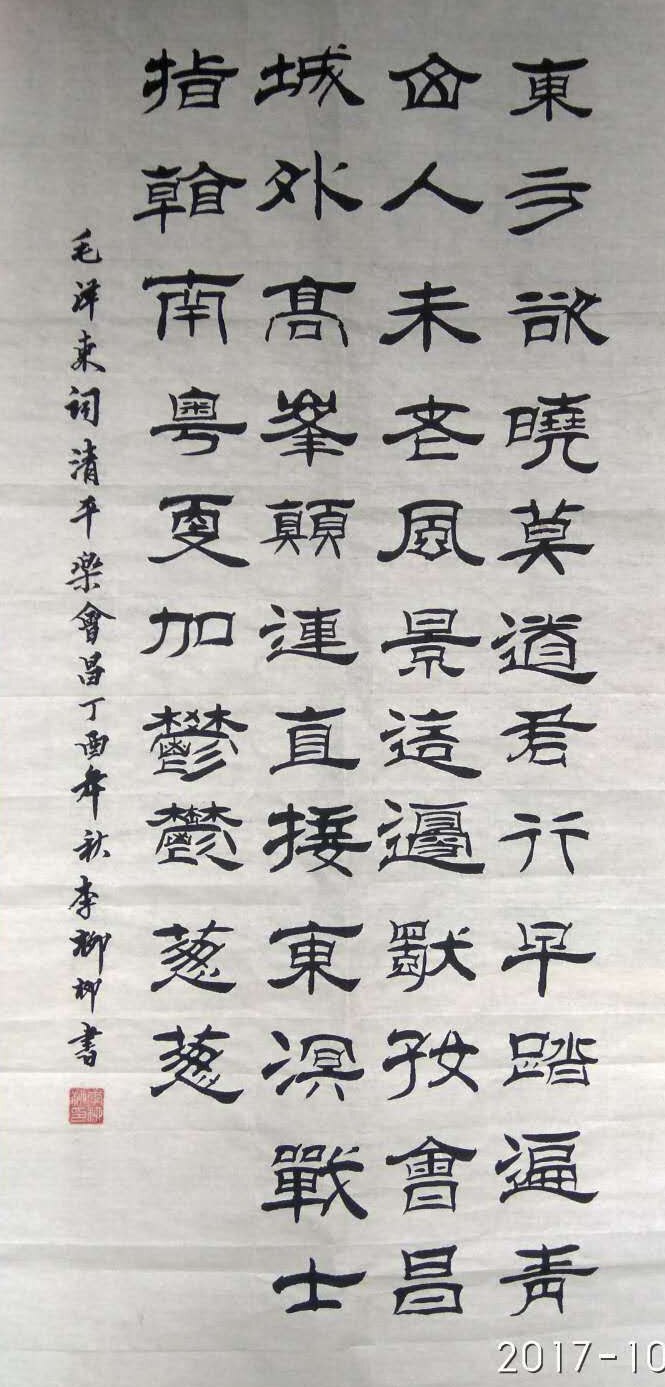 東方欲曉莫道君行早踏遍青
山人未老風景這邊獨好會昌
城外高峯顛連直接東溟戰士
指看南粵更加鬱鬱葱葱
毛泽東词清平樂會昌丁酉年秋李柳柳書
2017-10